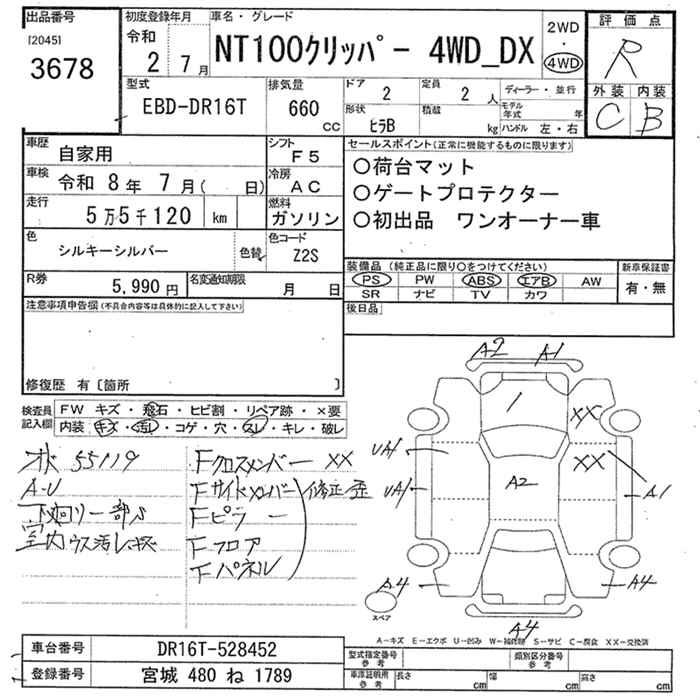 出品番号
[2045]
3678
初度登録年月
令和
2 7月
車名・グレード
NT100クリッパー 4WD_DX
2WD
・
4WD
評価点
R
外装 内装
C B
型式
EBD-DR16T
排気量
660
cc
ドア
2
定員
2 人
形状
ヒラB
積載
kg
ディーラー・並行
モデル年式 年
ハンドル 左・右
車歴
自家用
シフト
F5
車検
令和 8年 7月( 日)
冷房
AC
走行
5万5千120 km
燃料
ガソリン
色
シルキーシルバー
色替
色コード
Z2S
R券
5,990円
名変通知期限
月 日
セールスポイント(正常に機能するものに限ります)
○荷台マット
○ゲートプロテクター
○初出品 ワンオーナー車
装備品 (純正品に限り○をつけてください)
PS PW ABS エアB AW
SR ナビ TV カワ
新車保証書
有・無
後日品
注意事項申告欄(不具合内容等は具体的に記入して下さい)
修復歴 有〔箇所 〕
検査員
記入欄
FW キズ・飛石・ヒビ割・リペア跡・×要
内装 キズ・汚レ・コゲ・穴・スレ・キレ・破レ
55119
A-U
下廻り一部S
室内ウス汚レ・キズ
Fクロスメンバー XX
Fサイドメンバー
Fピラー
Fフロア
Fパネル
修正・歪
A2
A1
XX
XX
UA1
UA1
A2
A1
A4
A4
A4
スペア
A-キズ E-エクボ U-凹み W-補修跡 S-サビ C-腐食 XX-交換済
車台番号
DR16T-528452
登録番号
宮城 480 ね 1789
型式指定番号
参考
類別区分番号
参考
車庫証明用
参考
長さ cm
幅 cm
高さ cm